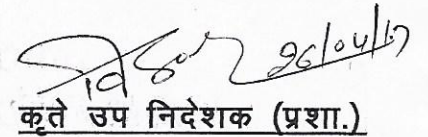 26/04/17
कृते उप निदेशक (प्रशा.)